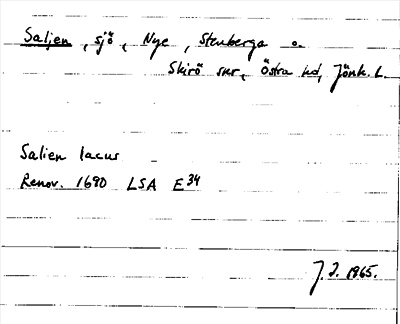 Saljen, sjö, Nye, Stenberga o.
Skirö snr, Östra hd, Jönk. L.
Salien lacus
Renov. 1690 LSA E34
J. J. 1965.